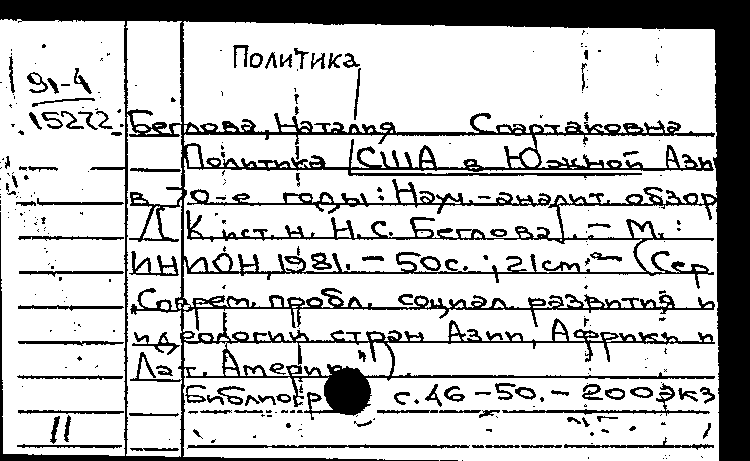 Политика
91-4
15272
Беглова, Наталия Спартаковна.
Политика США в Южной Ази
в 70-е годы: Науч.-аналит. обзор
/[К. ист. н. Н. С. Беглова]. - М.:
ИНИОН, 1981. - 50с.; 21см. - (Сер
"Соврем. пробл. социал. развития и
идеологии стран Азии, Африки и
Лат. Америки").
Библиогр с. 46-50. - 200экз
11